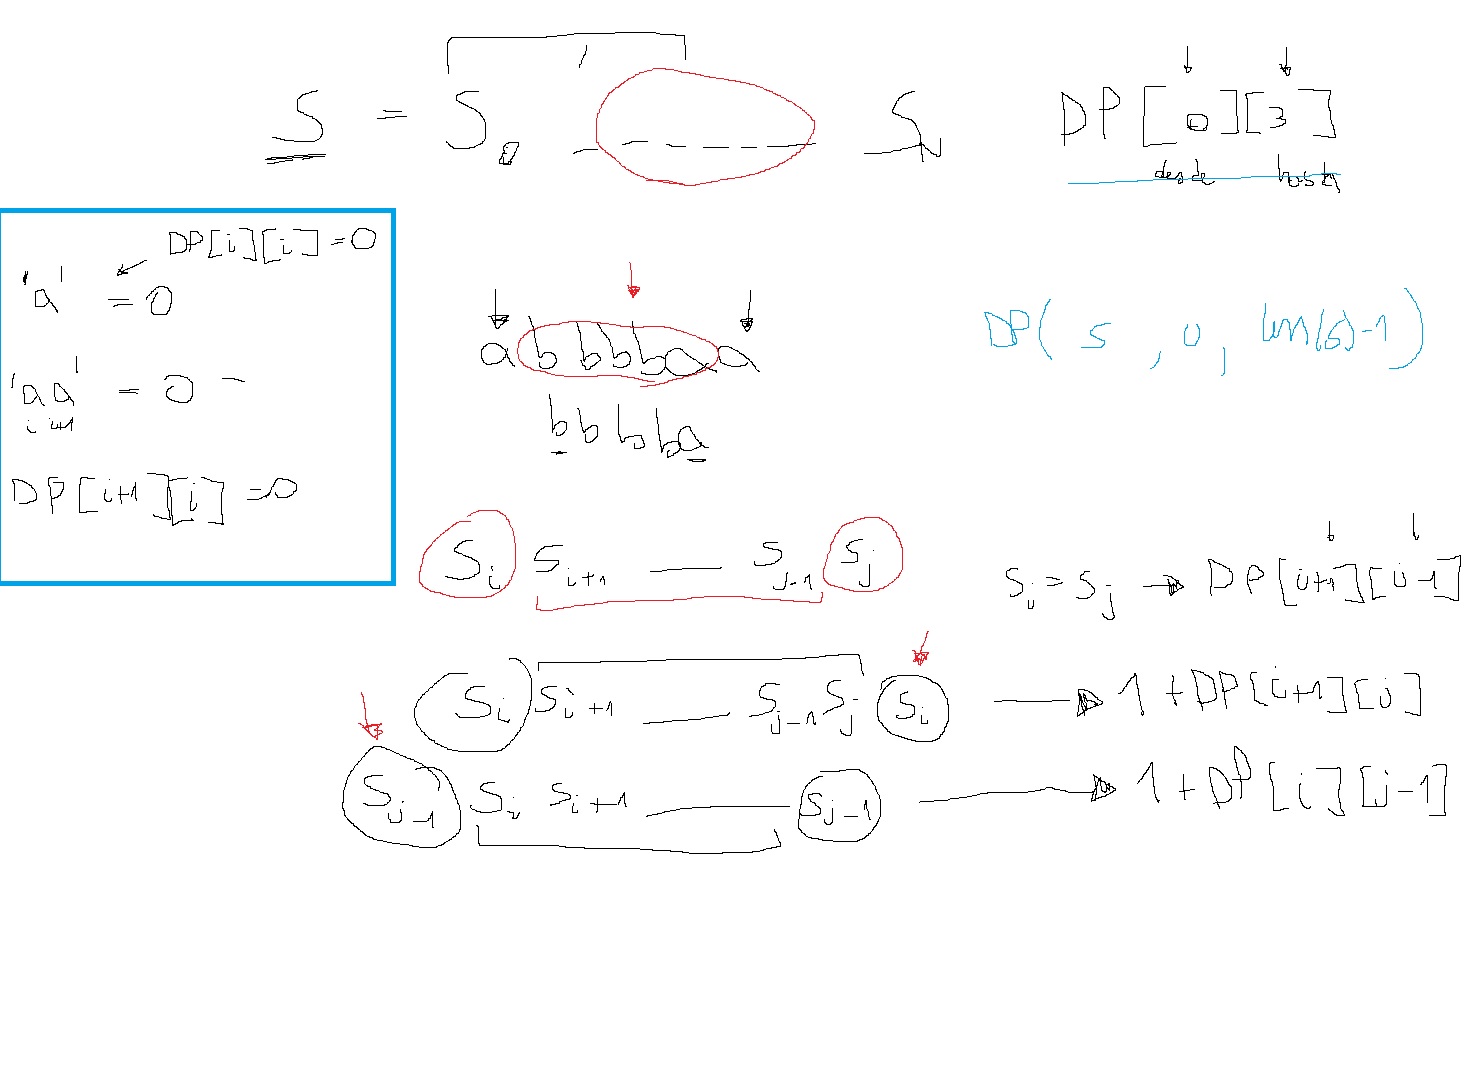 S = S₀ _ _ _ _ _ _ Sₙ
DP[0][3]
desde hasta
DP[i][i] = 0
'a' = 0
'aa' = 0
i i+1
DP[i+1][i] = 0
abbbbaa
bbbba
DP(S, 0, len(S)-1)
Sᵢ Sᵢ₊₁ — Sⱼ₋₁ Sⱼ
Sᵢ = Sⱼ → DP[i+1][j-1]
Sᵢ Sᵢ₊₁ — Sⱼ₋₁ Sⱼ Sᵢ → 1 + DP[i+1][j]
Sⱼ₋₁ Sᵢ Sᵢ₊₁ — Sⱼ₋₁ → 1 + DP[i][j-1]